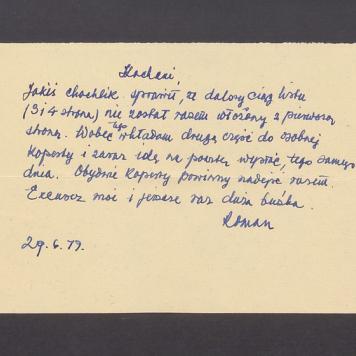 Kochani,
Jakiś chochlik sprawił, że dalszy ciąg listu
(3 i 4 strona) nie został razem włożony z pierwszą
stroną. Wobec tego wkładam drugą część do osobnej
koperty i zaraz idę na pocztę wysłać, tego samego
dnia. Obydwie koperty powinny nadejść razem.
Excusez moi i jeszcze raz duża buźka.
Roman
29.6.79.